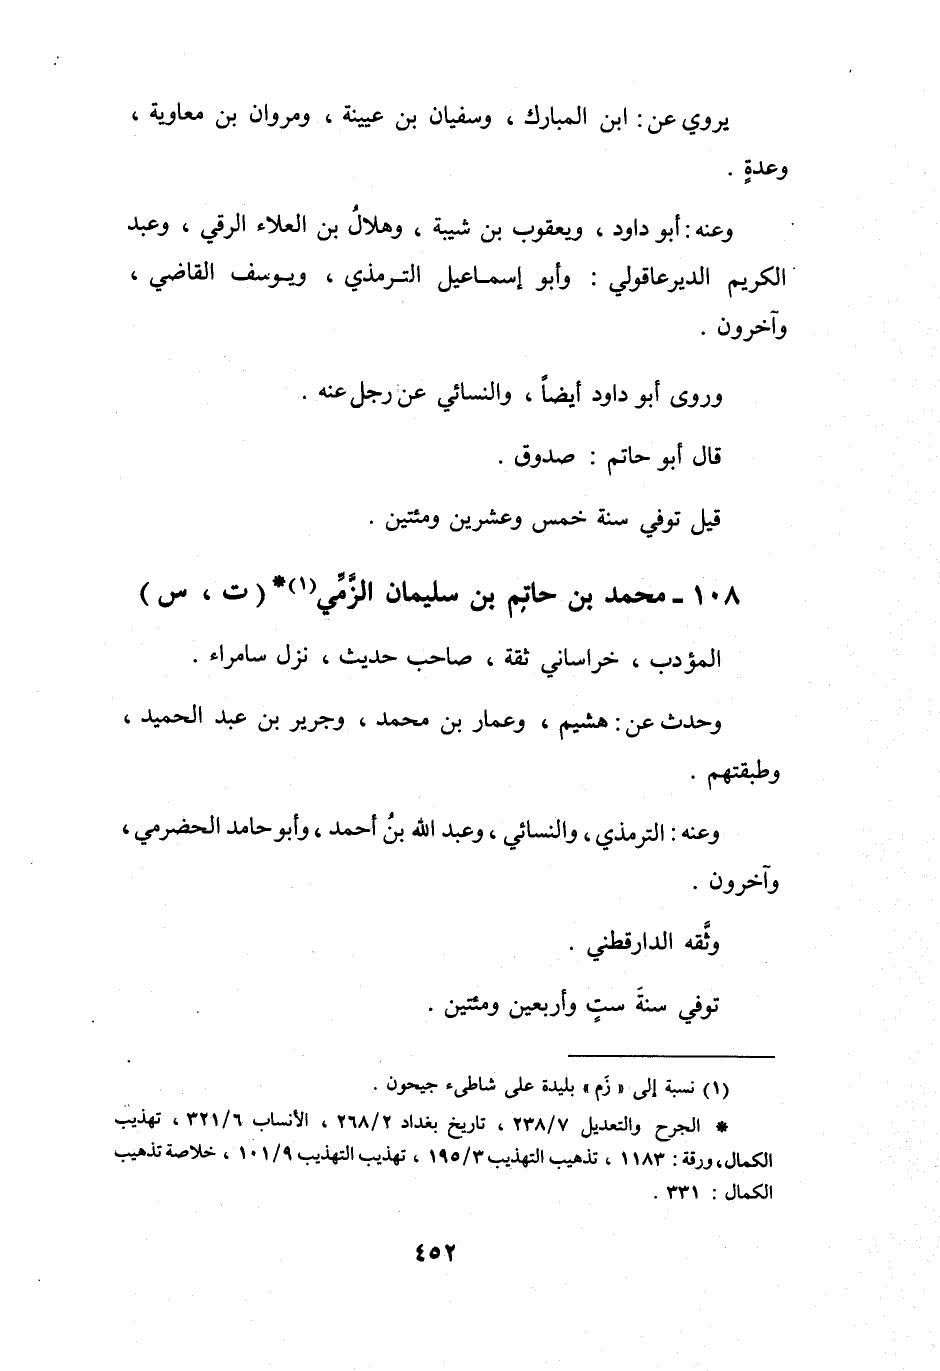 يروي عن : ابن المبارك ، وسفيان بن عيينة ، ومروان بن معاوية ،
وعدةٍ .
وعنه : أبو داود ، ويعقوب بن شيبة ، وهلالُ بن العلاء الرقي ، وعبد
الكريم الديرعاقولي : وأبو إسمـاعيل التـرمذي ، ويـوسف القاضي ،
وآخرون .
وروى أبو داود أيضاً ، والنسائي عن رجل عنه .
قال أبو حاتم : صدوق .
قيل توفي سنة خمس وعشرين ومئتين .
١٠٨ ـ محمد بن حاتِم بن سليمان الزَّمِّي(١)* ( ت ، س )
المؤدب ، خراساني ثقة ، صاحب حديث ، نزل سامراء .
وحدث عن : هشيم ، وعمار بن محمد ، وجرير بن عبد الحميد ،
وطبقتهم .
وعنه : الترمذي ، والنسائي ، وعبد الله بنُ أحمد ، وأبو حامد الحضرمي ،
وآخرون .
وثَّقه الدارقطني .
توفي سنةَ ستٍ وأربعين ومئتين .
(١) نسبة إلى « زَم » بليدة على شاطىء جيحون .
* الجرح والتعديل ٢٣٨/٧ ، تاريخ بغداد ٢٦٨/٢ ، الأنساب ٣٢١/٦ ، تهذيب
الكمال، ورقة : ١١٨٣ ، تذهيب التهذيب ١٩٥/٣ ، تهذيب التهذيب ١٠١/٩ ، خلاصة تذهيب
الكمال : ٣٣١ .
٤٥٢